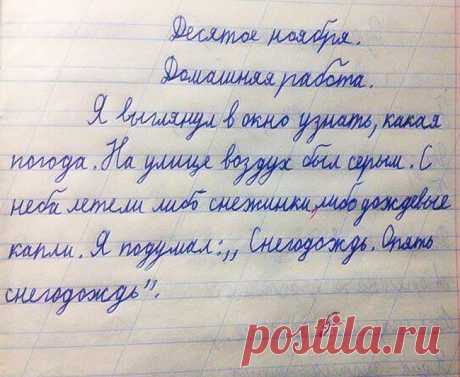 Десятое ноября.
Домашняя работа.
Я выглянул в окно узнать, какая
погода. На улице воздух был серым. С
неба летели либо снежинки, либо дождевые
капли. Я подумал: „ Снегодождь. Опять
снегодождь”.
postila.ru